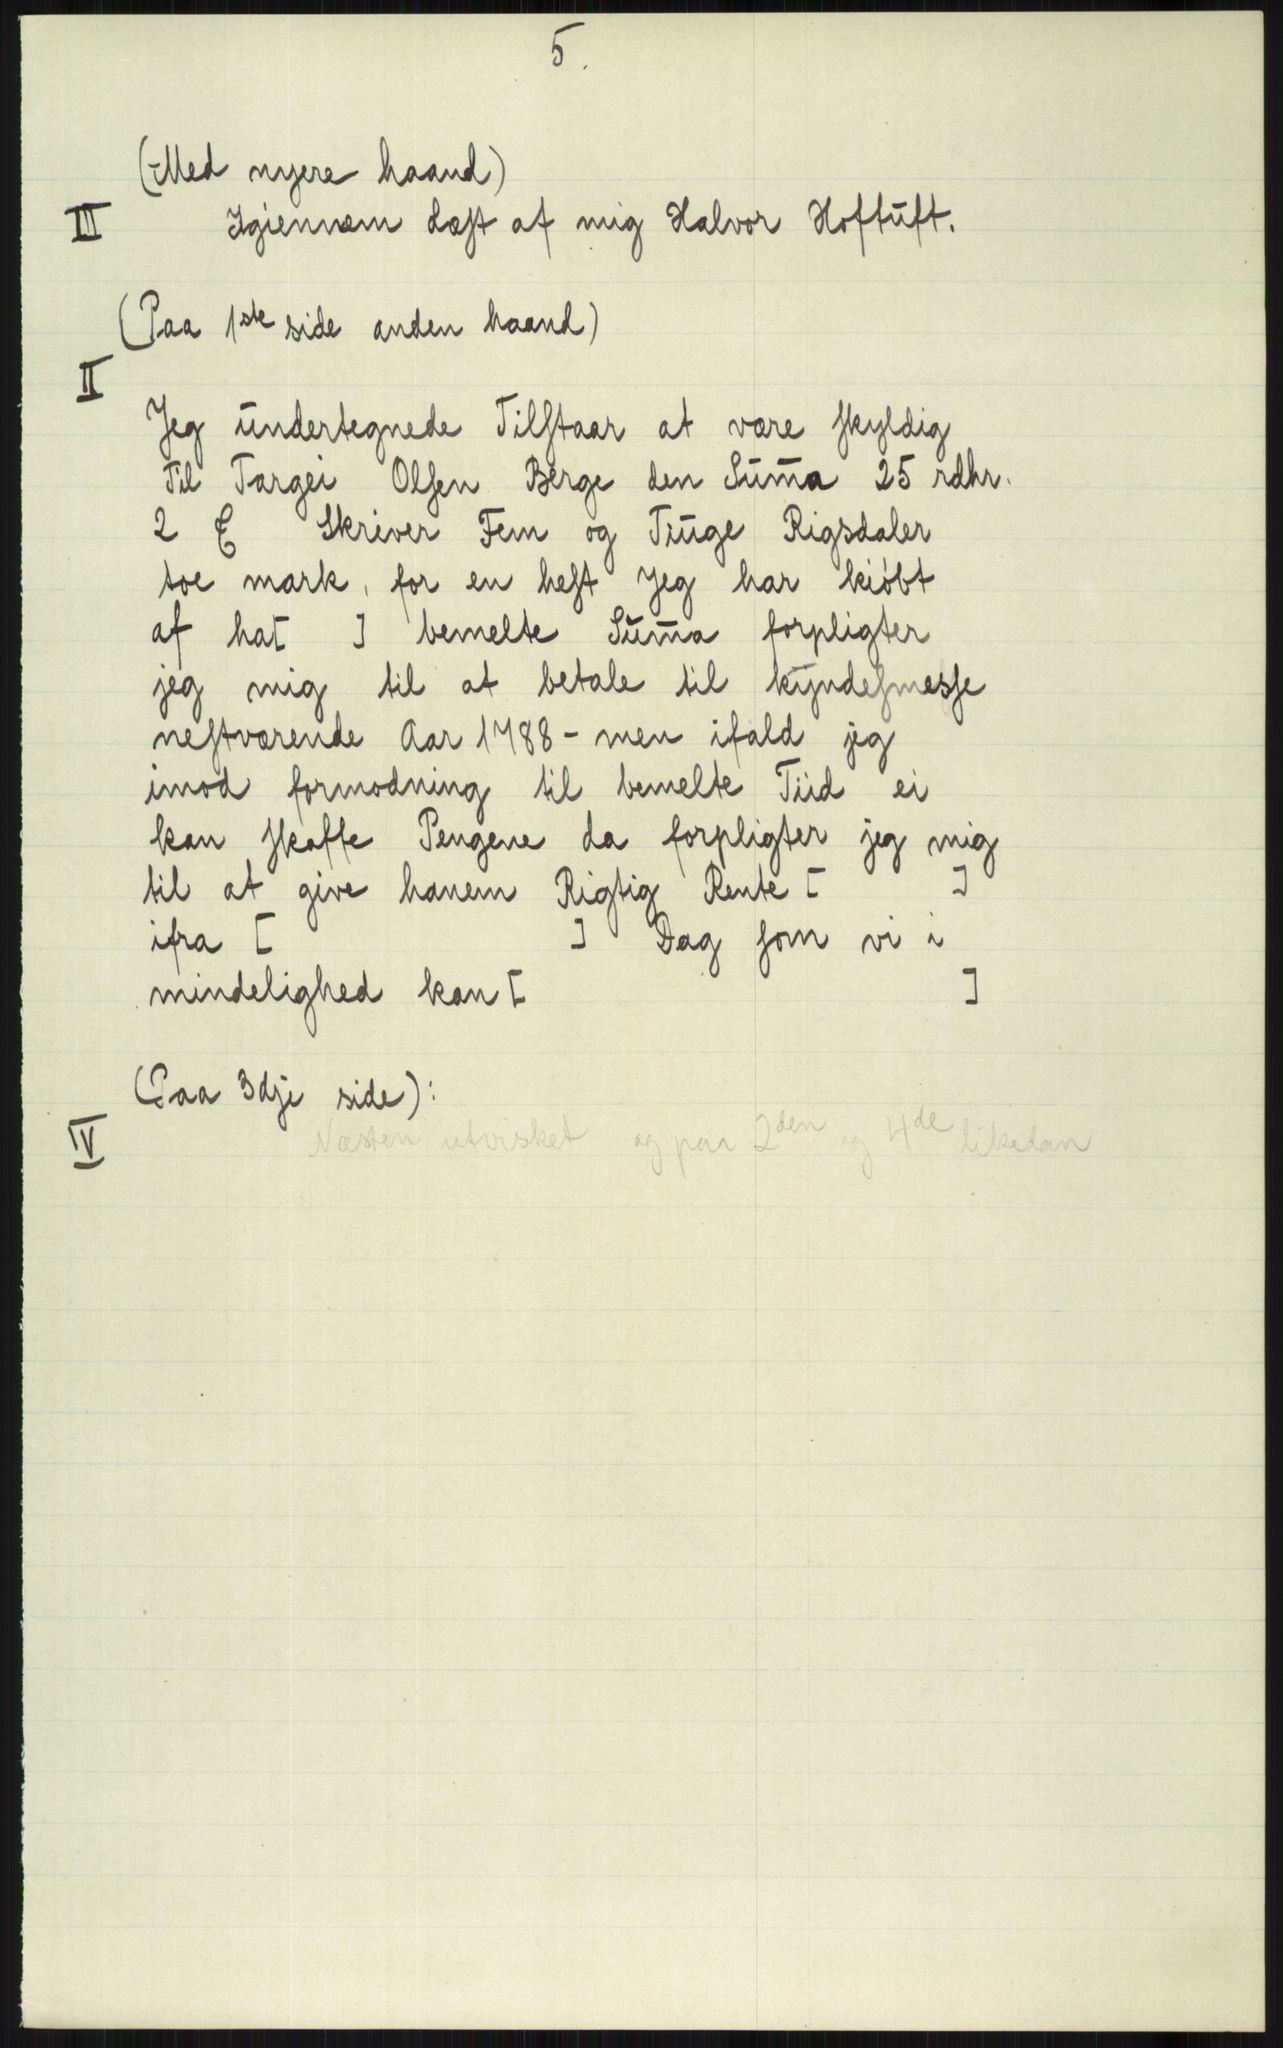 5.
(Med nyere haand)
III Igiennem Læst af mig Halvor Hoftuft.
(Paa 1ste side anden haand)
II
Jeg undertegnede Tilstaar at være skyldig
Til Targei Olsen Berge den Sum̄a 25 rdhr.
2 Skriver Fem og Tiuge Rigsdaler
toe mark, for en hest Jeg har kiöbt
af ha[ ] bemelte Sum̄a forpligter
jeg mig til at betale til kyndesmesse
nestværende Aar 1788 - men ifald jeg
imod formodning til bemelte Tiid ei
kan skaffe Pengene da forpligter jeg mig
til at give hanem Rigtig Rente [ ]
ifra [ ] Dag som vi i
mindelighed kan [ ]
(Paa 3dje side):
IV Næsten utvisket og paa 2den og 4de likedan